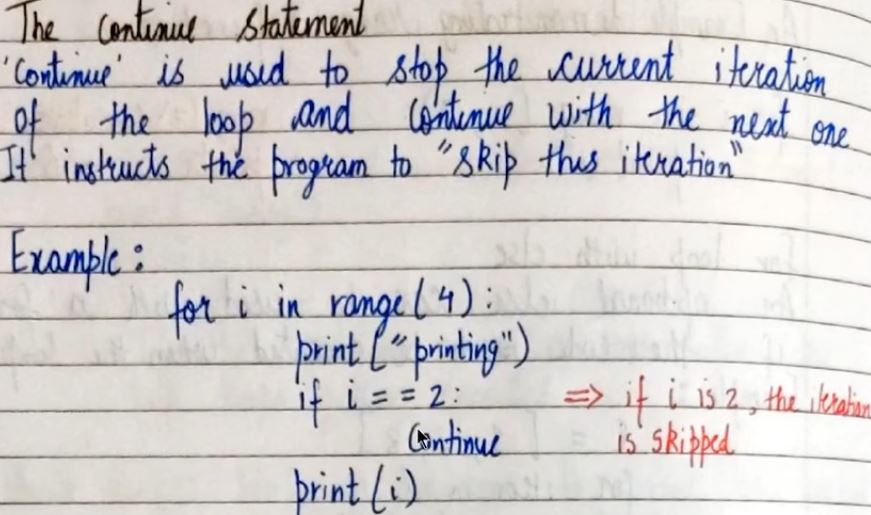 The Continue Statement
'Continue' is used to stop the current iteration
of the loop and Continue with the next one
It instructs the program to "skip this iteration"
Example :
for i in range(4):
print ("printing")
if i == 2: => if i is 2, the iteration
Continue is skipped
print (i)